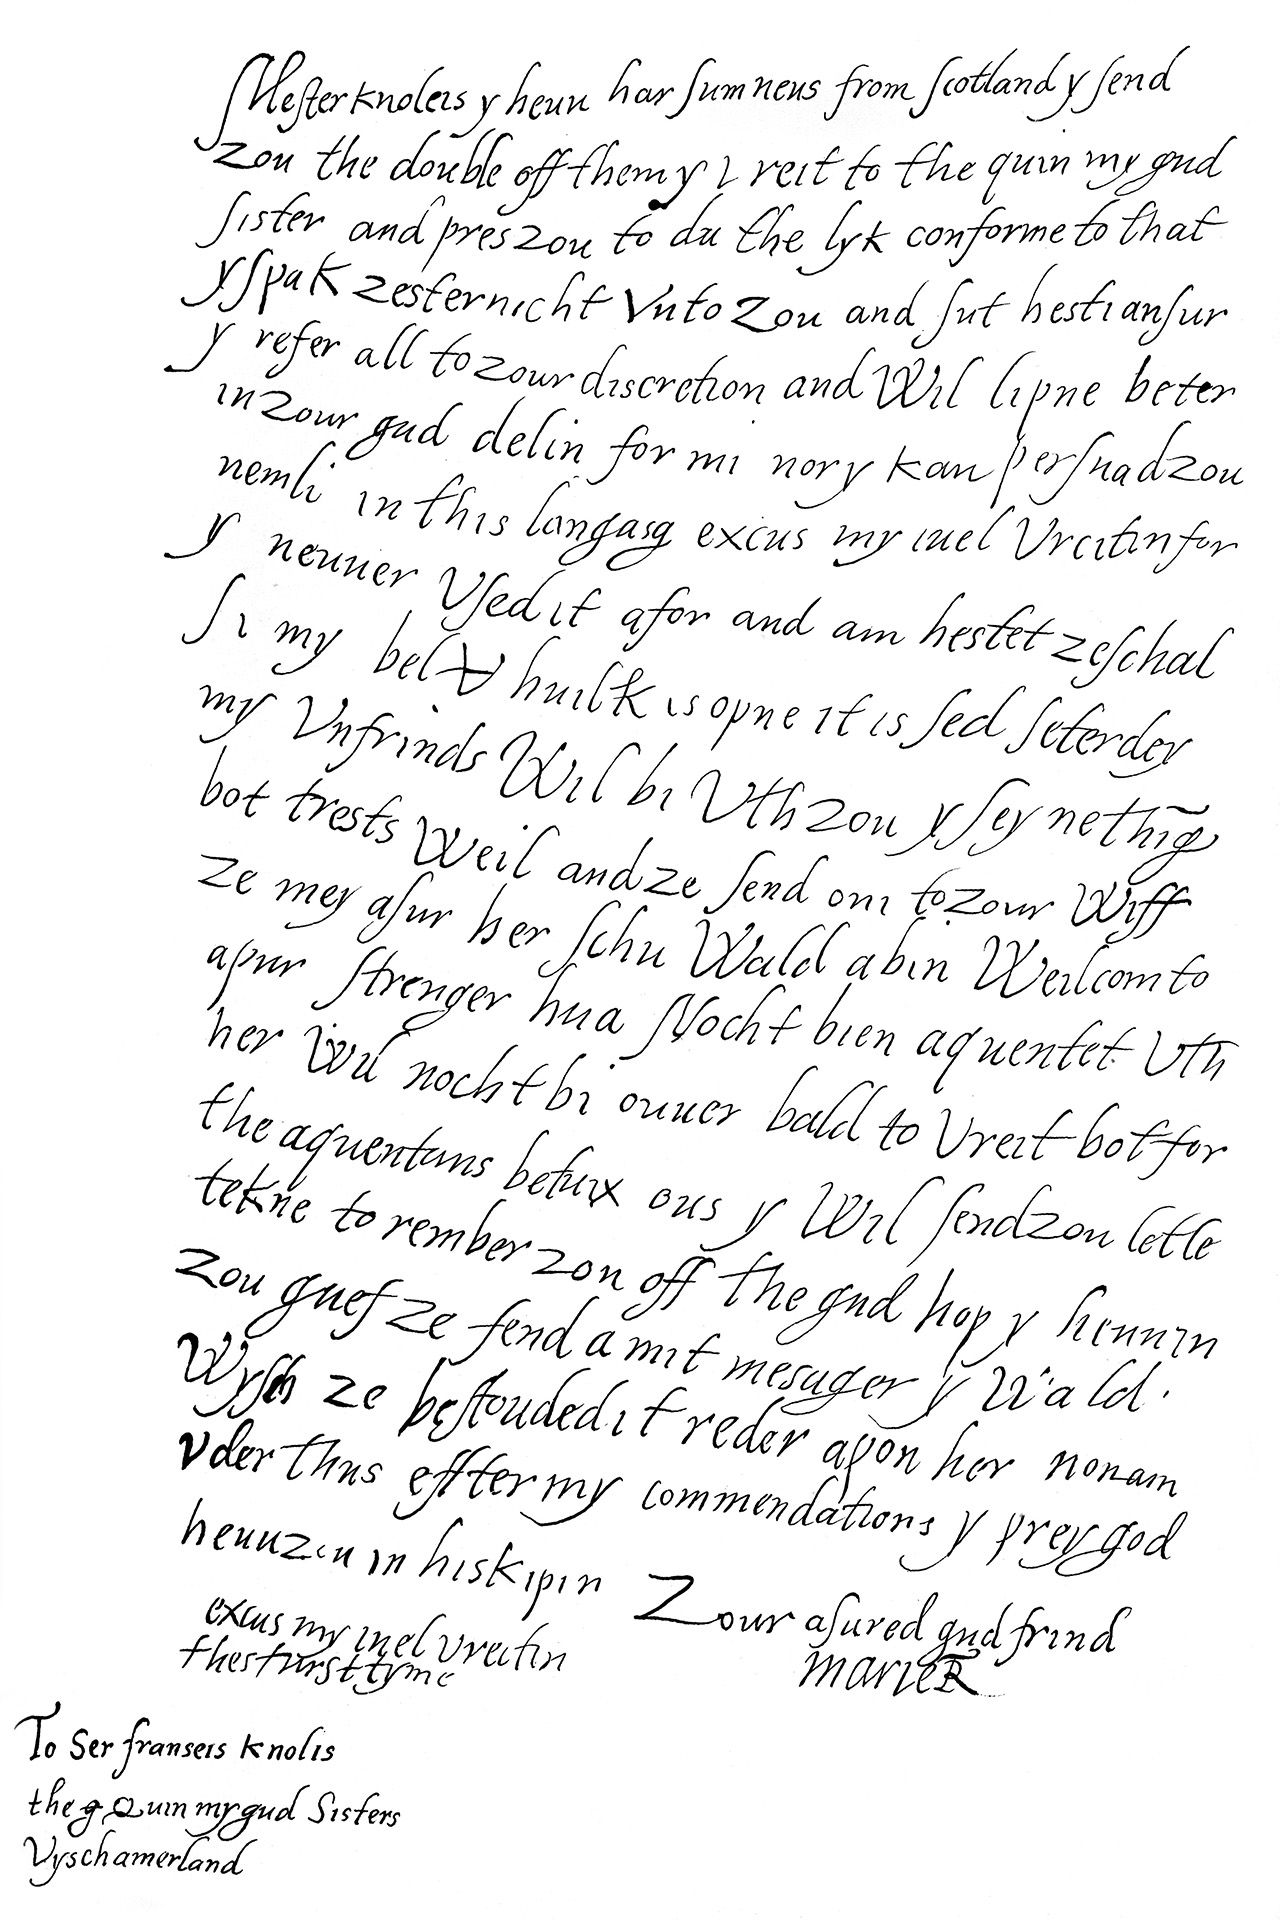 Mester knoleis y heuu har sum neus from scotland y send
zou the double off them y vreit to the quin my gud
sister and pres zou to du the lyk conforme to that
y spak zesternicht Vnto Zou and sut hesti ansur
y refer all to zour discretion and Wil lipne beter
in zour gud delin for mi nor y kan persuad zou
nemli in this langasg excus my iuel Vreitin for
y neuuer Vsed it afor and am hestet ze schal
si my bel huilk is opne it is sed seterdey
my Vnfrinds Wil bi Vth zou y sey nething
bot trests Weil and ze send oni to zour Wiff
ze mey asur her schu Wald a bin Weilcom to
apur strenger hua Nocht bien aquentet Vth
her Wil nocht bi ouuer bald to Vreit bot for
the aquentans betuix ous y Wil send zou letle
tekne to rember zou off the gud hop y heuu in
zou guef ze fend a mit mesager y Wald
Wysh ze bestouded it reder apon her nonam
vder thus effter my commendations y prey god
heuu zou in his kipin
Zour asured gud frind
Marie R
excus my iuel Vreitin
thes furst tyme
To Ser franseis Knolis
the g Quin my gud Sisters
Vyschamerland